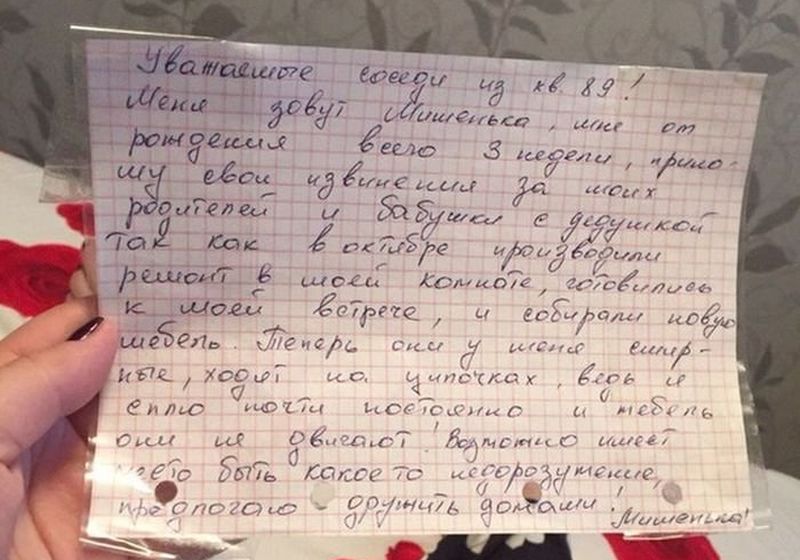 Уважаемые соседи из кв. 89!
Меня зовут Мишенька, мне от
рождения всего 3 недели, прино-
шу свои извинения за моих
родителей и бабушки с дедушкой
так как в октябре производили
ремонт в моей комнате, готовились
к моей встрече, и собирали новую
мебель. Теперь они у меня смир-
ные, ходят на ципочках, ведь я
сплю почти постоянно и мебель
они не двигают! Возможно имеет
место быть какое то недорозумение,
предлогаю дружить домами!
Мишенька!